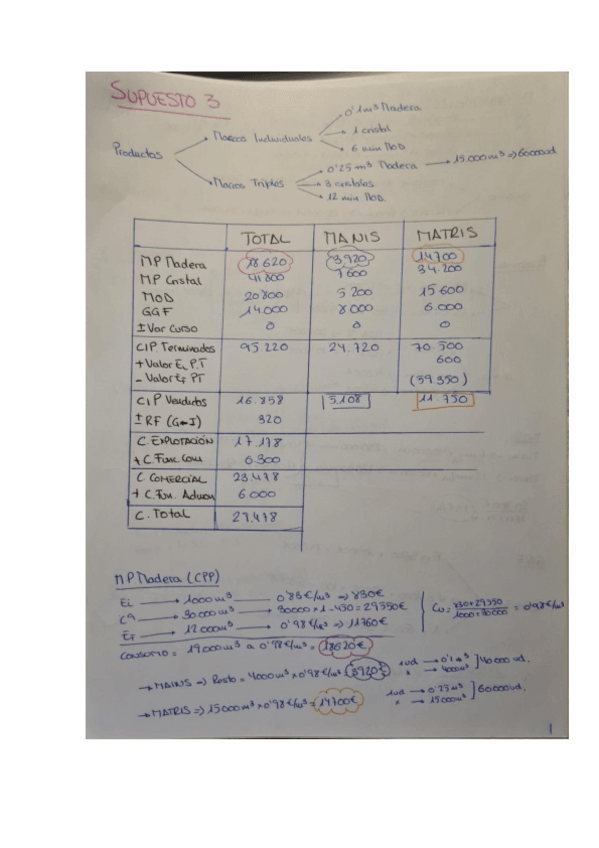 SUPUESTO 3
Productos
Marcos Individuales
0'1m³ Madera
1 cristal
6 min MOD
Marcos Triples
0'25 m³ Madera → 15.000 m³ ⇒ 60000ud
3 cristales
12 min MOD.
TOTAL MANIS MATRIS
MP Madera 18620 3.920 14700
MP Cristal 41.800 7600 34.200
MOD 20800 5200 15600
GGF 14.000 8000 6.000
± Var Curso 0 0 0
CIP. Terminados 95.220 24.720 70.500
+ Valor Ei P.T 600
- Valor Ef PT (59350)
CIP Vendidos 16.858 5.108 11.750
± RF (G-I) 320
C. EXPLOTACIÓN 17.178
+ C. Func. Com 6.300
C. COMERCIAL 23.478
+ C. Fun. Admon 6.000
C. Total 29.478
MP Madera (CPP)
Ei → 1000 m³ 0'83€/m³ ⇒ 830€
Cª → 30000 m³ → 30000 x 1 - 450 = 29550€
Ef → 12000 m³ → 0'98€/m³ ⇒ 11760€
Cu = 830+29550 / 1000+30000 = 0'98€/m³
CONSUMO = 19000 m³ a 0'98€/m³ = 18620€
→ MAINS ⇒ Resto = 4000 m³ x 0'98€/m³ 3920€
1ud → 0'1 m³
x → 4000 m³ ] 40000 ud.
→ MATRIS ⇒ 15000 m³ x 0'98€/m³ = 14700€
1ud → 0'25 m³
x → 15000 m³ ] 60000ud.
1